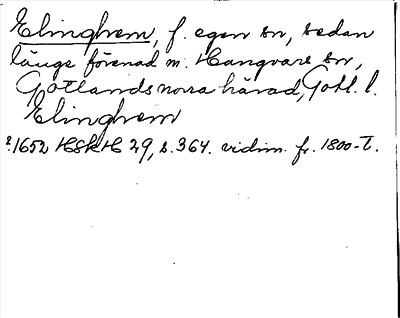 Elinghem, f. egen sn, sedan
länge förenad m. Hangvars sn,
Gotlands norra härad, Gotl. l.
Elinghem
2.1652 HSkH 29, s. 364. vidim. fr. 1800-t.